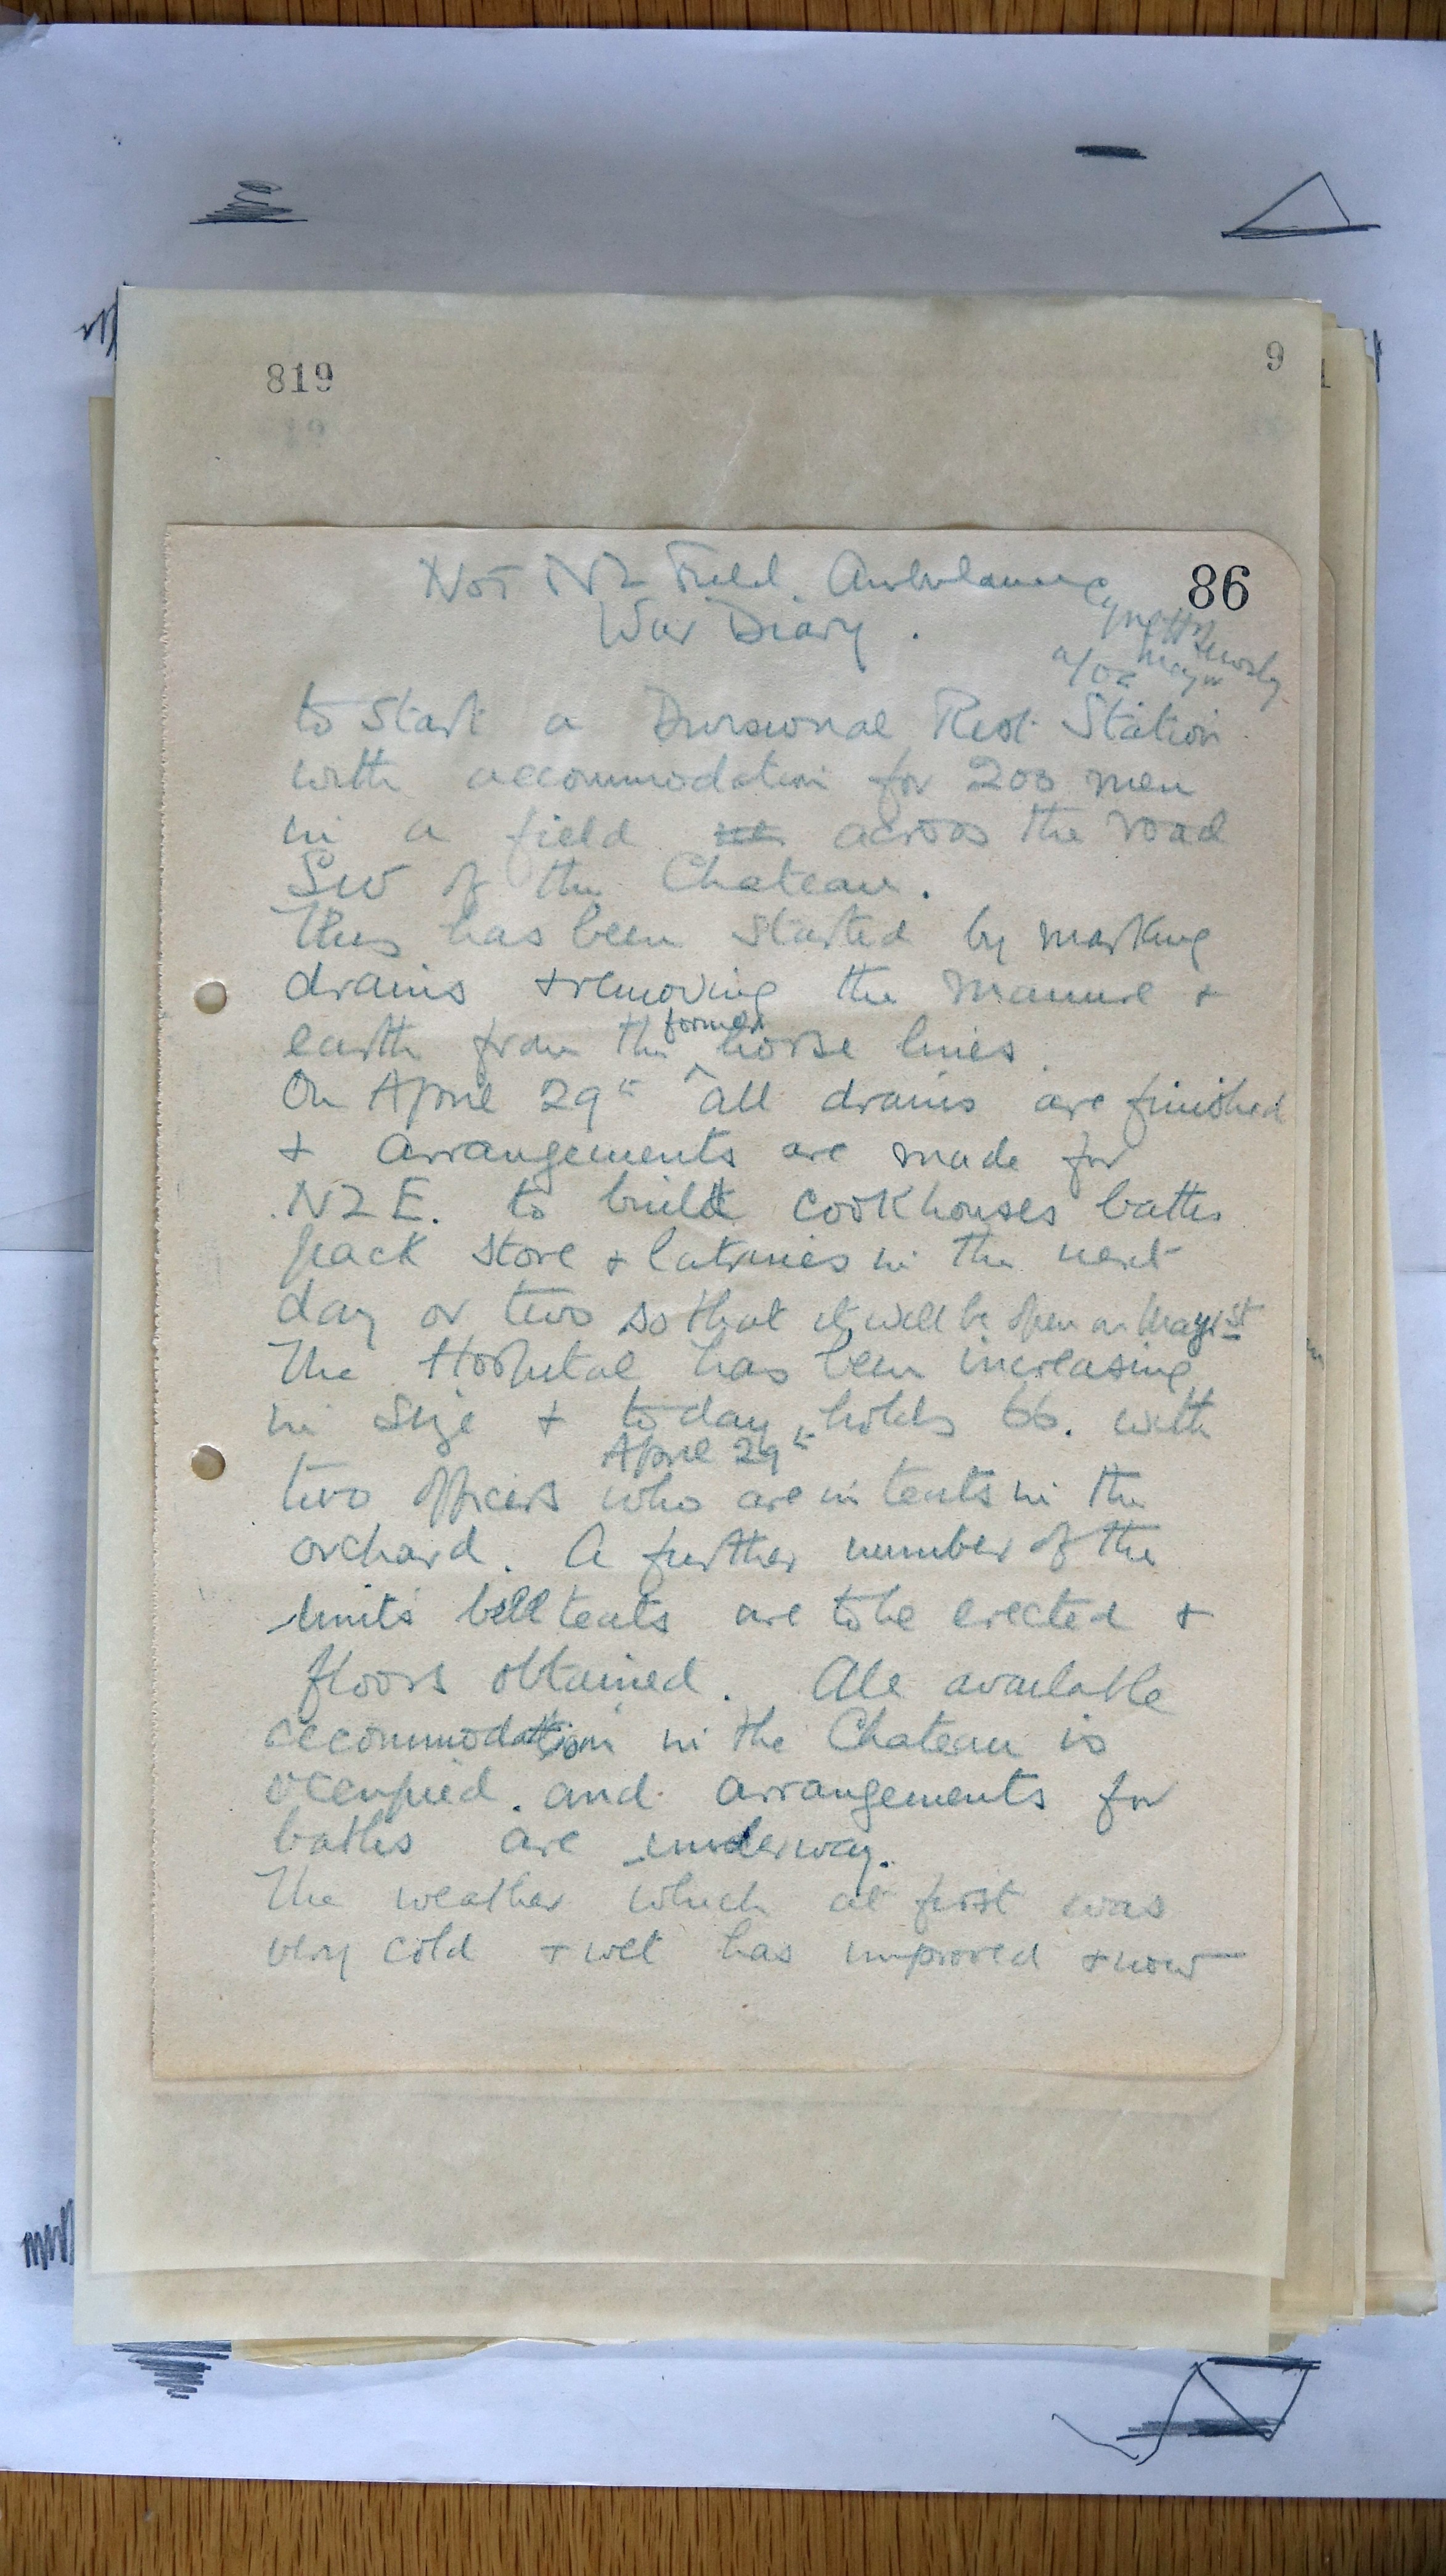 819
9
86
No 1 NZ Field Ambulance
War Diary.
a/OC
to start a Divisional Rest Station
with accommodation for 200 men
in a field across the road
SW of the Chateau.
This has been started by marking
drains + removing the manure +
former
earth from the horse lines.
On April 29th all drains are finished
+ arrangements are made for
NZE. to build cookhouses baths
pack store + latrines in the next
day or two so that it will be open on May 1st
The Hospital has been increasing
in size + today holds 66. with
April 29th
two officers who are in tents in the
orchard. A further number of the
units bell tents are to be erected +
floors obtained. All available
accommodation in the Chateau is
occupied. and arrangements for
baths are underway.
The weather which at first was
very cold + wet has improved + now